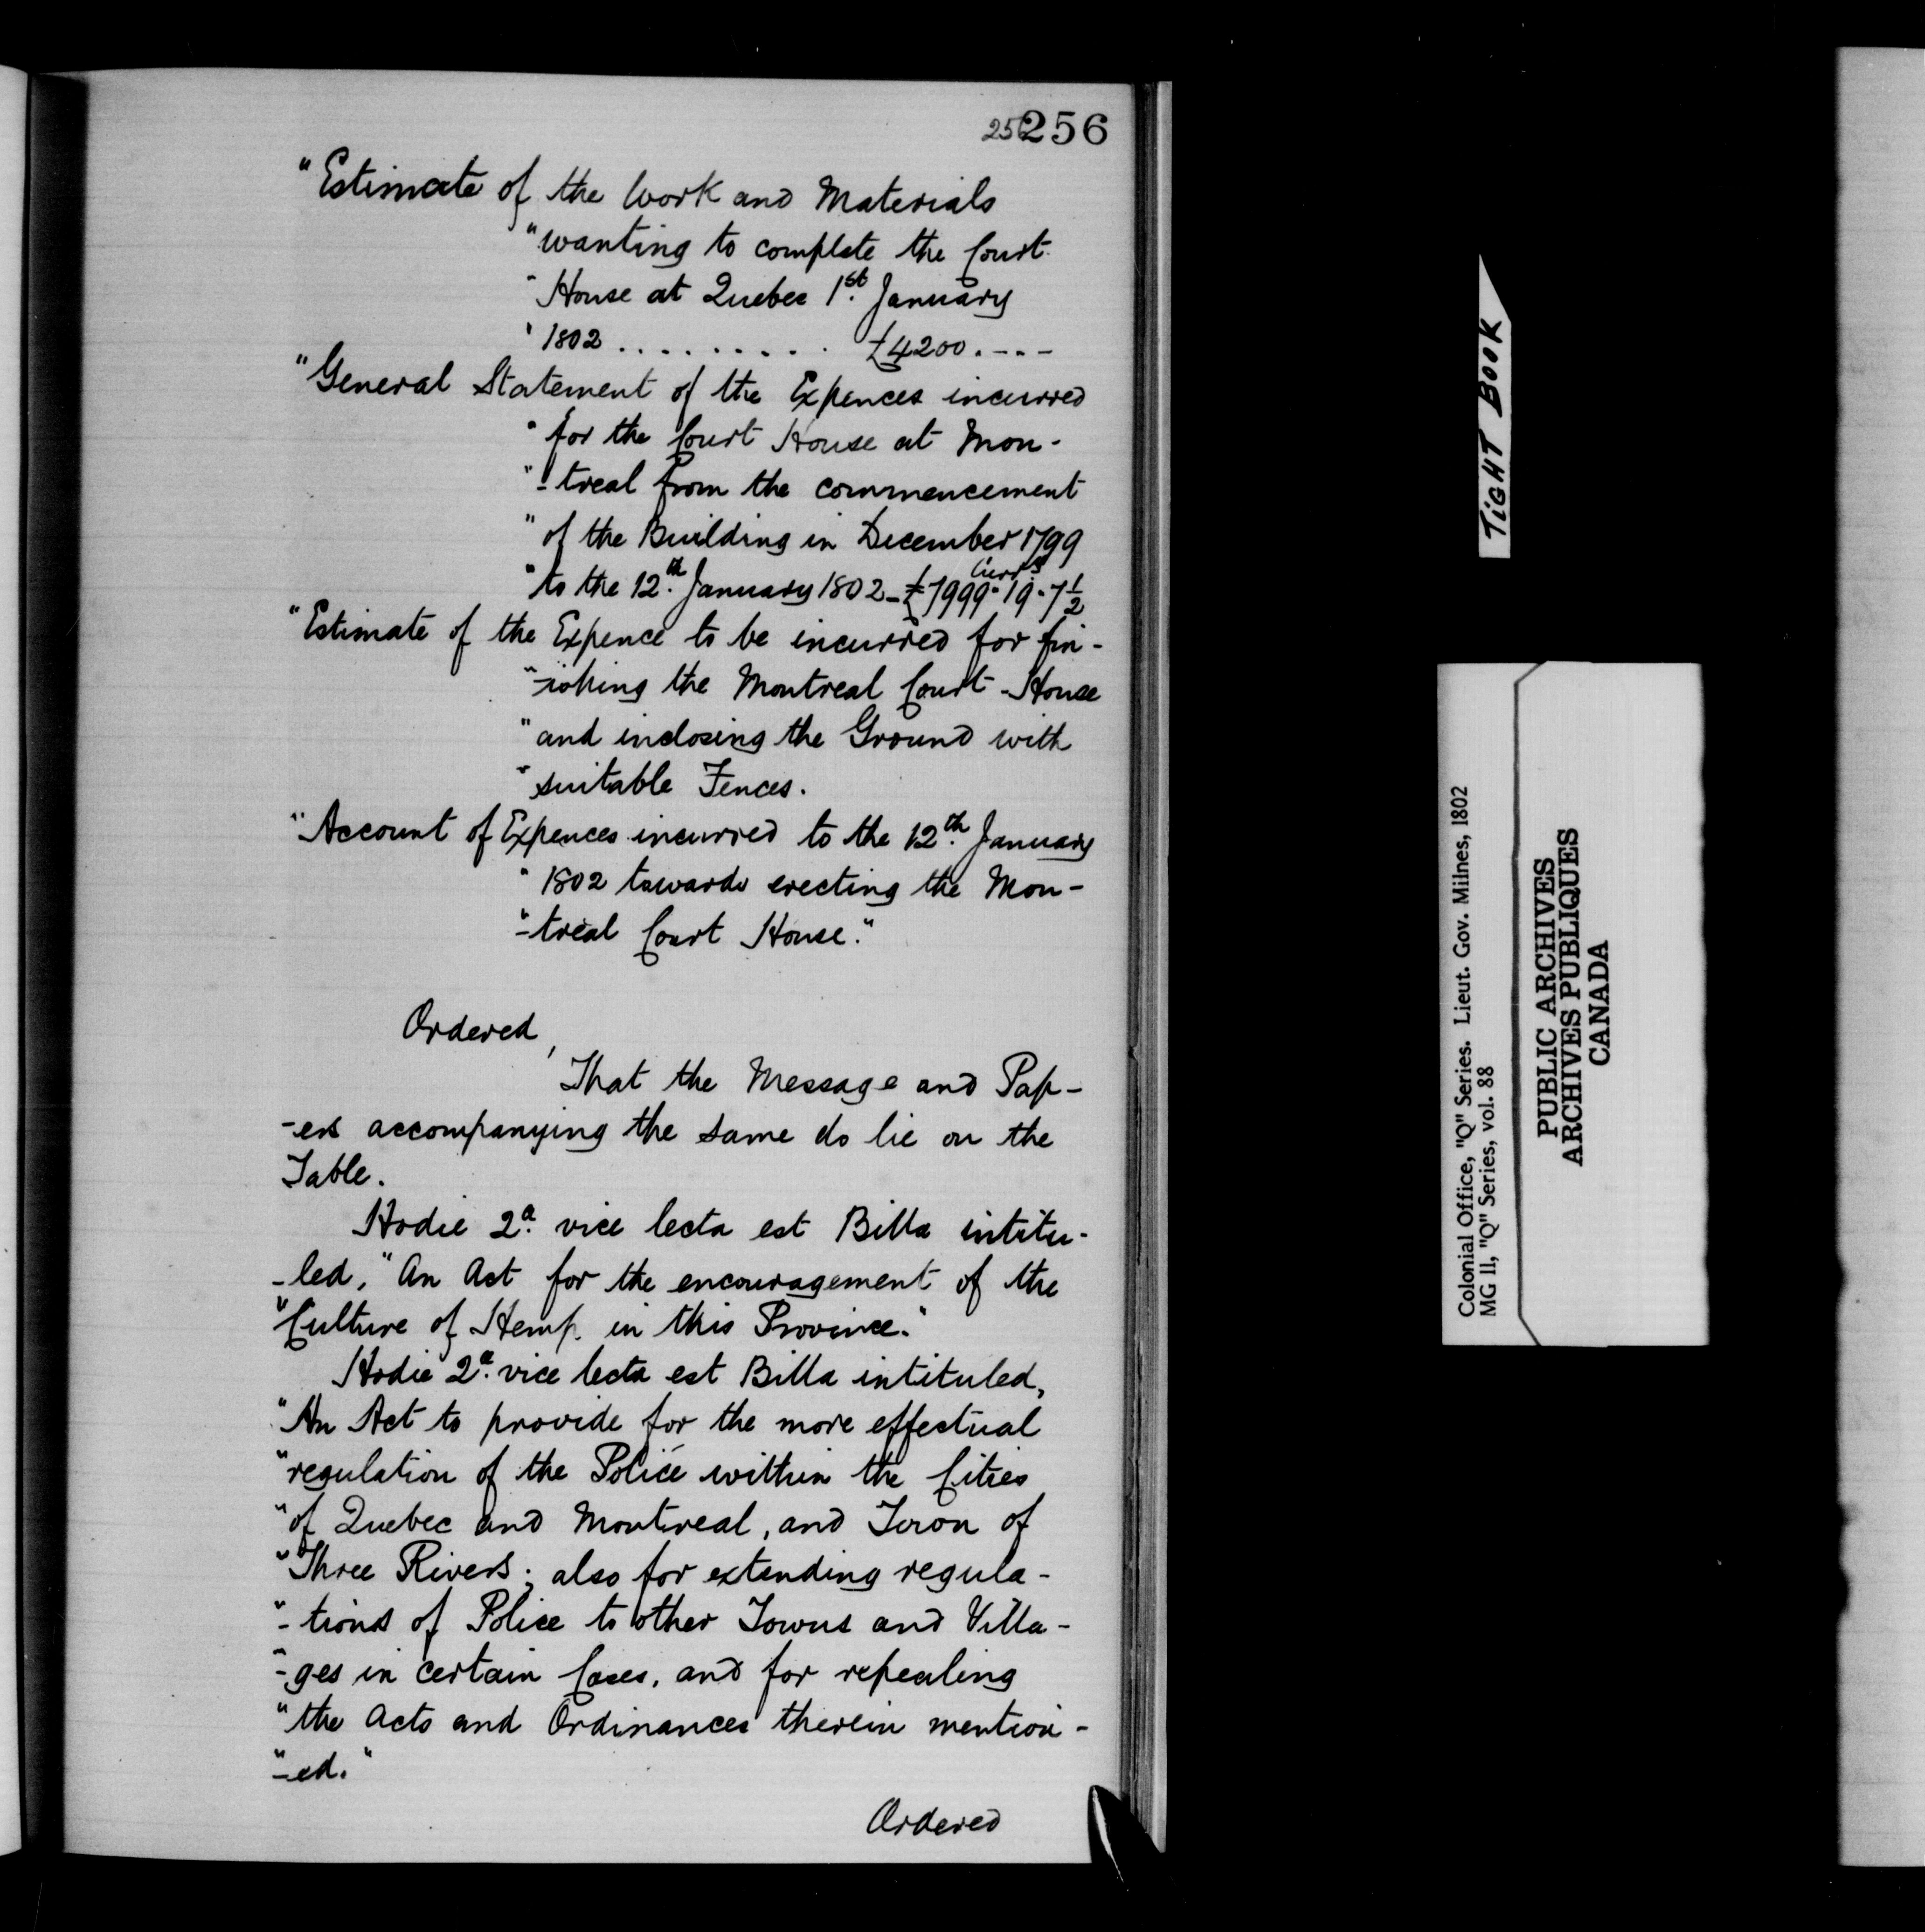 256 256
"Estimate of the Work and Materials
"wanting to complete the Court
"House at Quebec 1st. January
"1802 .......... £4200.---
"General Statement of the Expences incurred
"for the Court House at Mon-
"-treal from the commencement
"of the Building in December 1799
Curr.y
"to the 12th. January 1802 - £7999.19.7½
"Estimate of the Expence to be incurred for fin-
"-ishing the Montreal Court-House
"and inclosing the Ground with
"suitable Fences.
"Account of Expences incurred to the 12th. January
"1802 towards erecting the Mon-
"-treal Court House."
Ordered,
That the Message and Pap-
-ers accompanying the same do lie on the
Table.
Hodie 2a. vice lecta est Billa intitu-
-led, "An Act for the encouragement of the
"Culture of Hemp in this Province."
Hodie 2a. vice lecta est Billa intituled,
"An Act to provide for the more effectual
"regulation of the Police within the Cities
"of Quebec and Montreal, and Town of
"Three Rivers; also for extending regula-
"-tions of Police to other Towns and Villa-
"-ges in certain Cases, and for repealing
"the Acts and Ordinances therein mention-
"-ed."
Ordered
TIGHT BOOK
Colonial Office, "Q" Series. Lieut. Gov. Milnes, 1802
MG 11, "Q" Series, vol. 88
PUBLIC ARCHIVES
ARCHIVES PUBLIQUES
CANADA